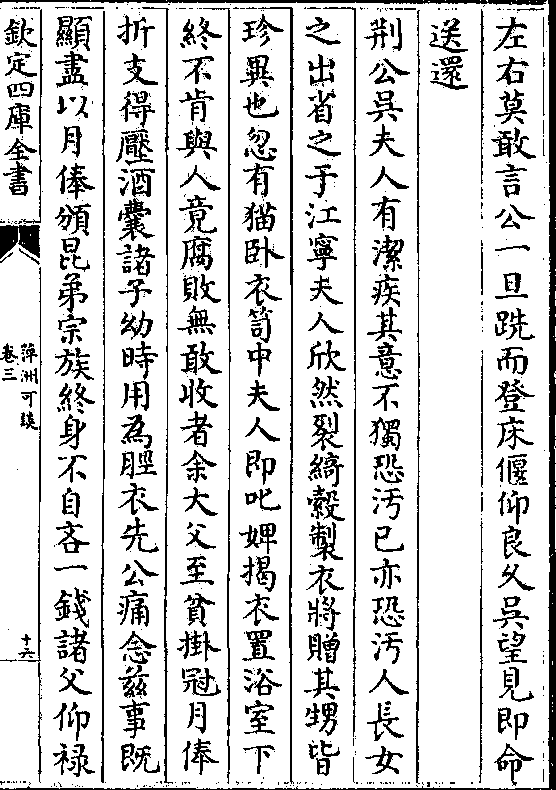 左右莫敢言公一旦跣而登床偃仰良久吳望見即命
送還
荆公吳夫人有潔疾其意不獨恐汚已亦恐汚人長女
之出省之于江寧夫人欣然裂綺縠製衣將贈其甥皆
珍異也忽有猫卧衣笥中夫人即叱婢揭衣置浴室下
終不肯與人竟腐敗無敢收者余大父至貧掛冠月俸
折支得壓酒囊諸子幼時用為脛衣先公痛念兹事既
顯盡以月俸頒昆弟宗族終身不自吝一錢諸父仰禄
欽定四庫全書
萍洲可談
卷三
十六